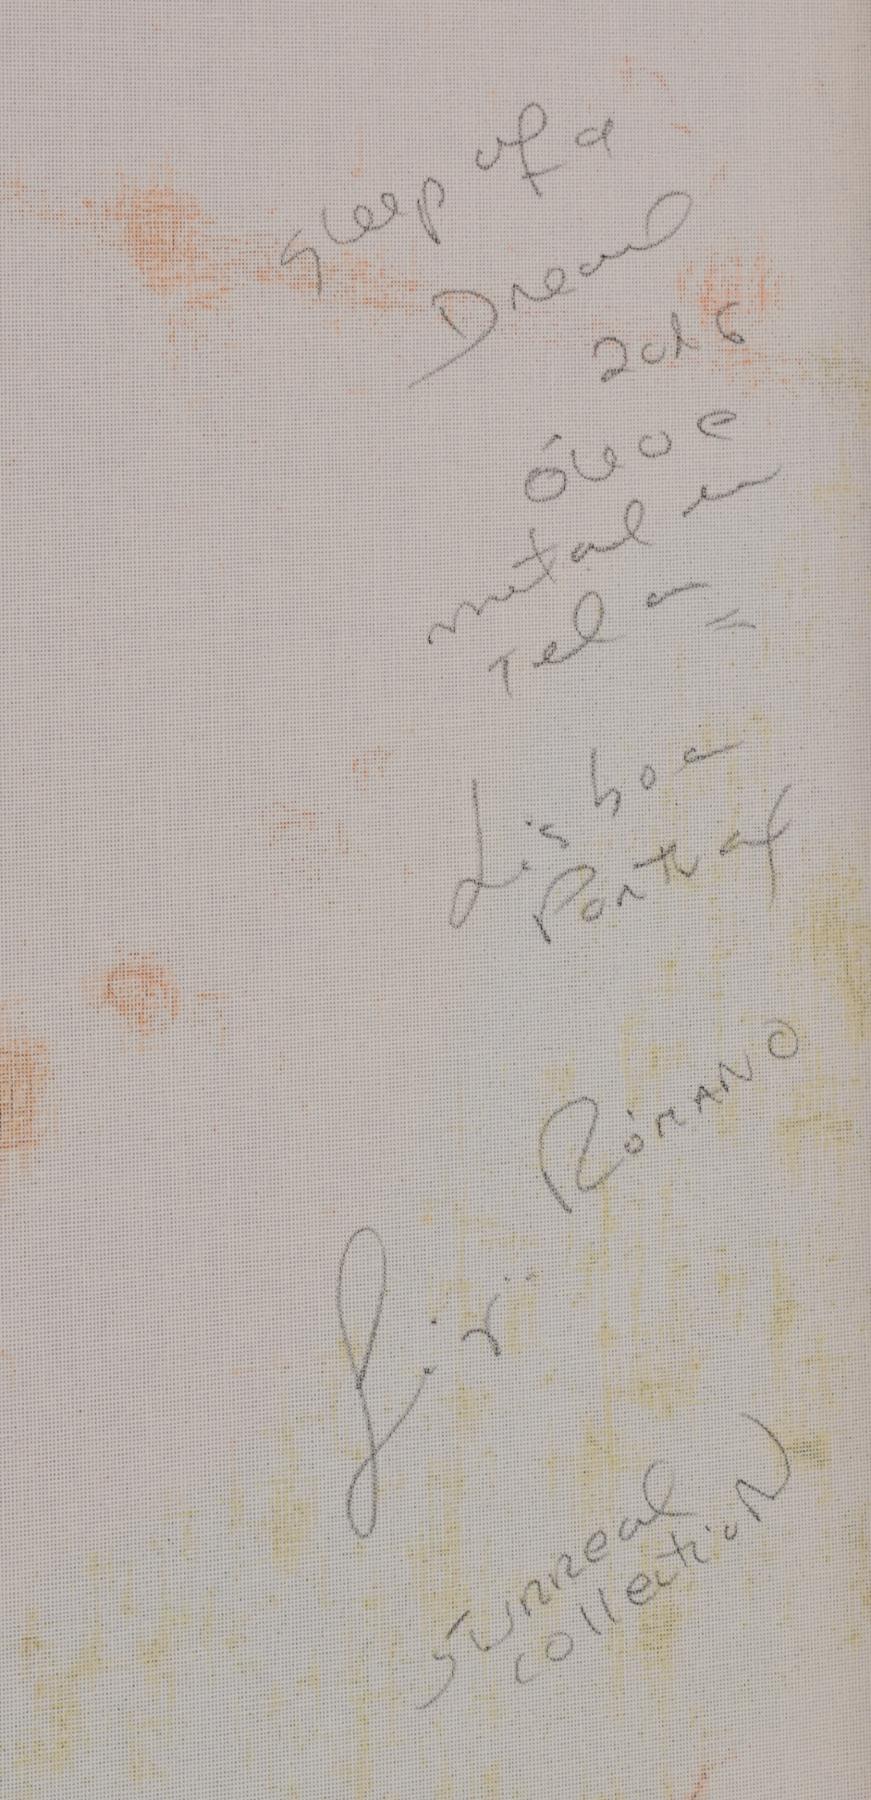 Sleep of a
Dream
2016
óleo e
metal en
Tela
Lisboa
Portugal
ROMANO
SURREAL
collection